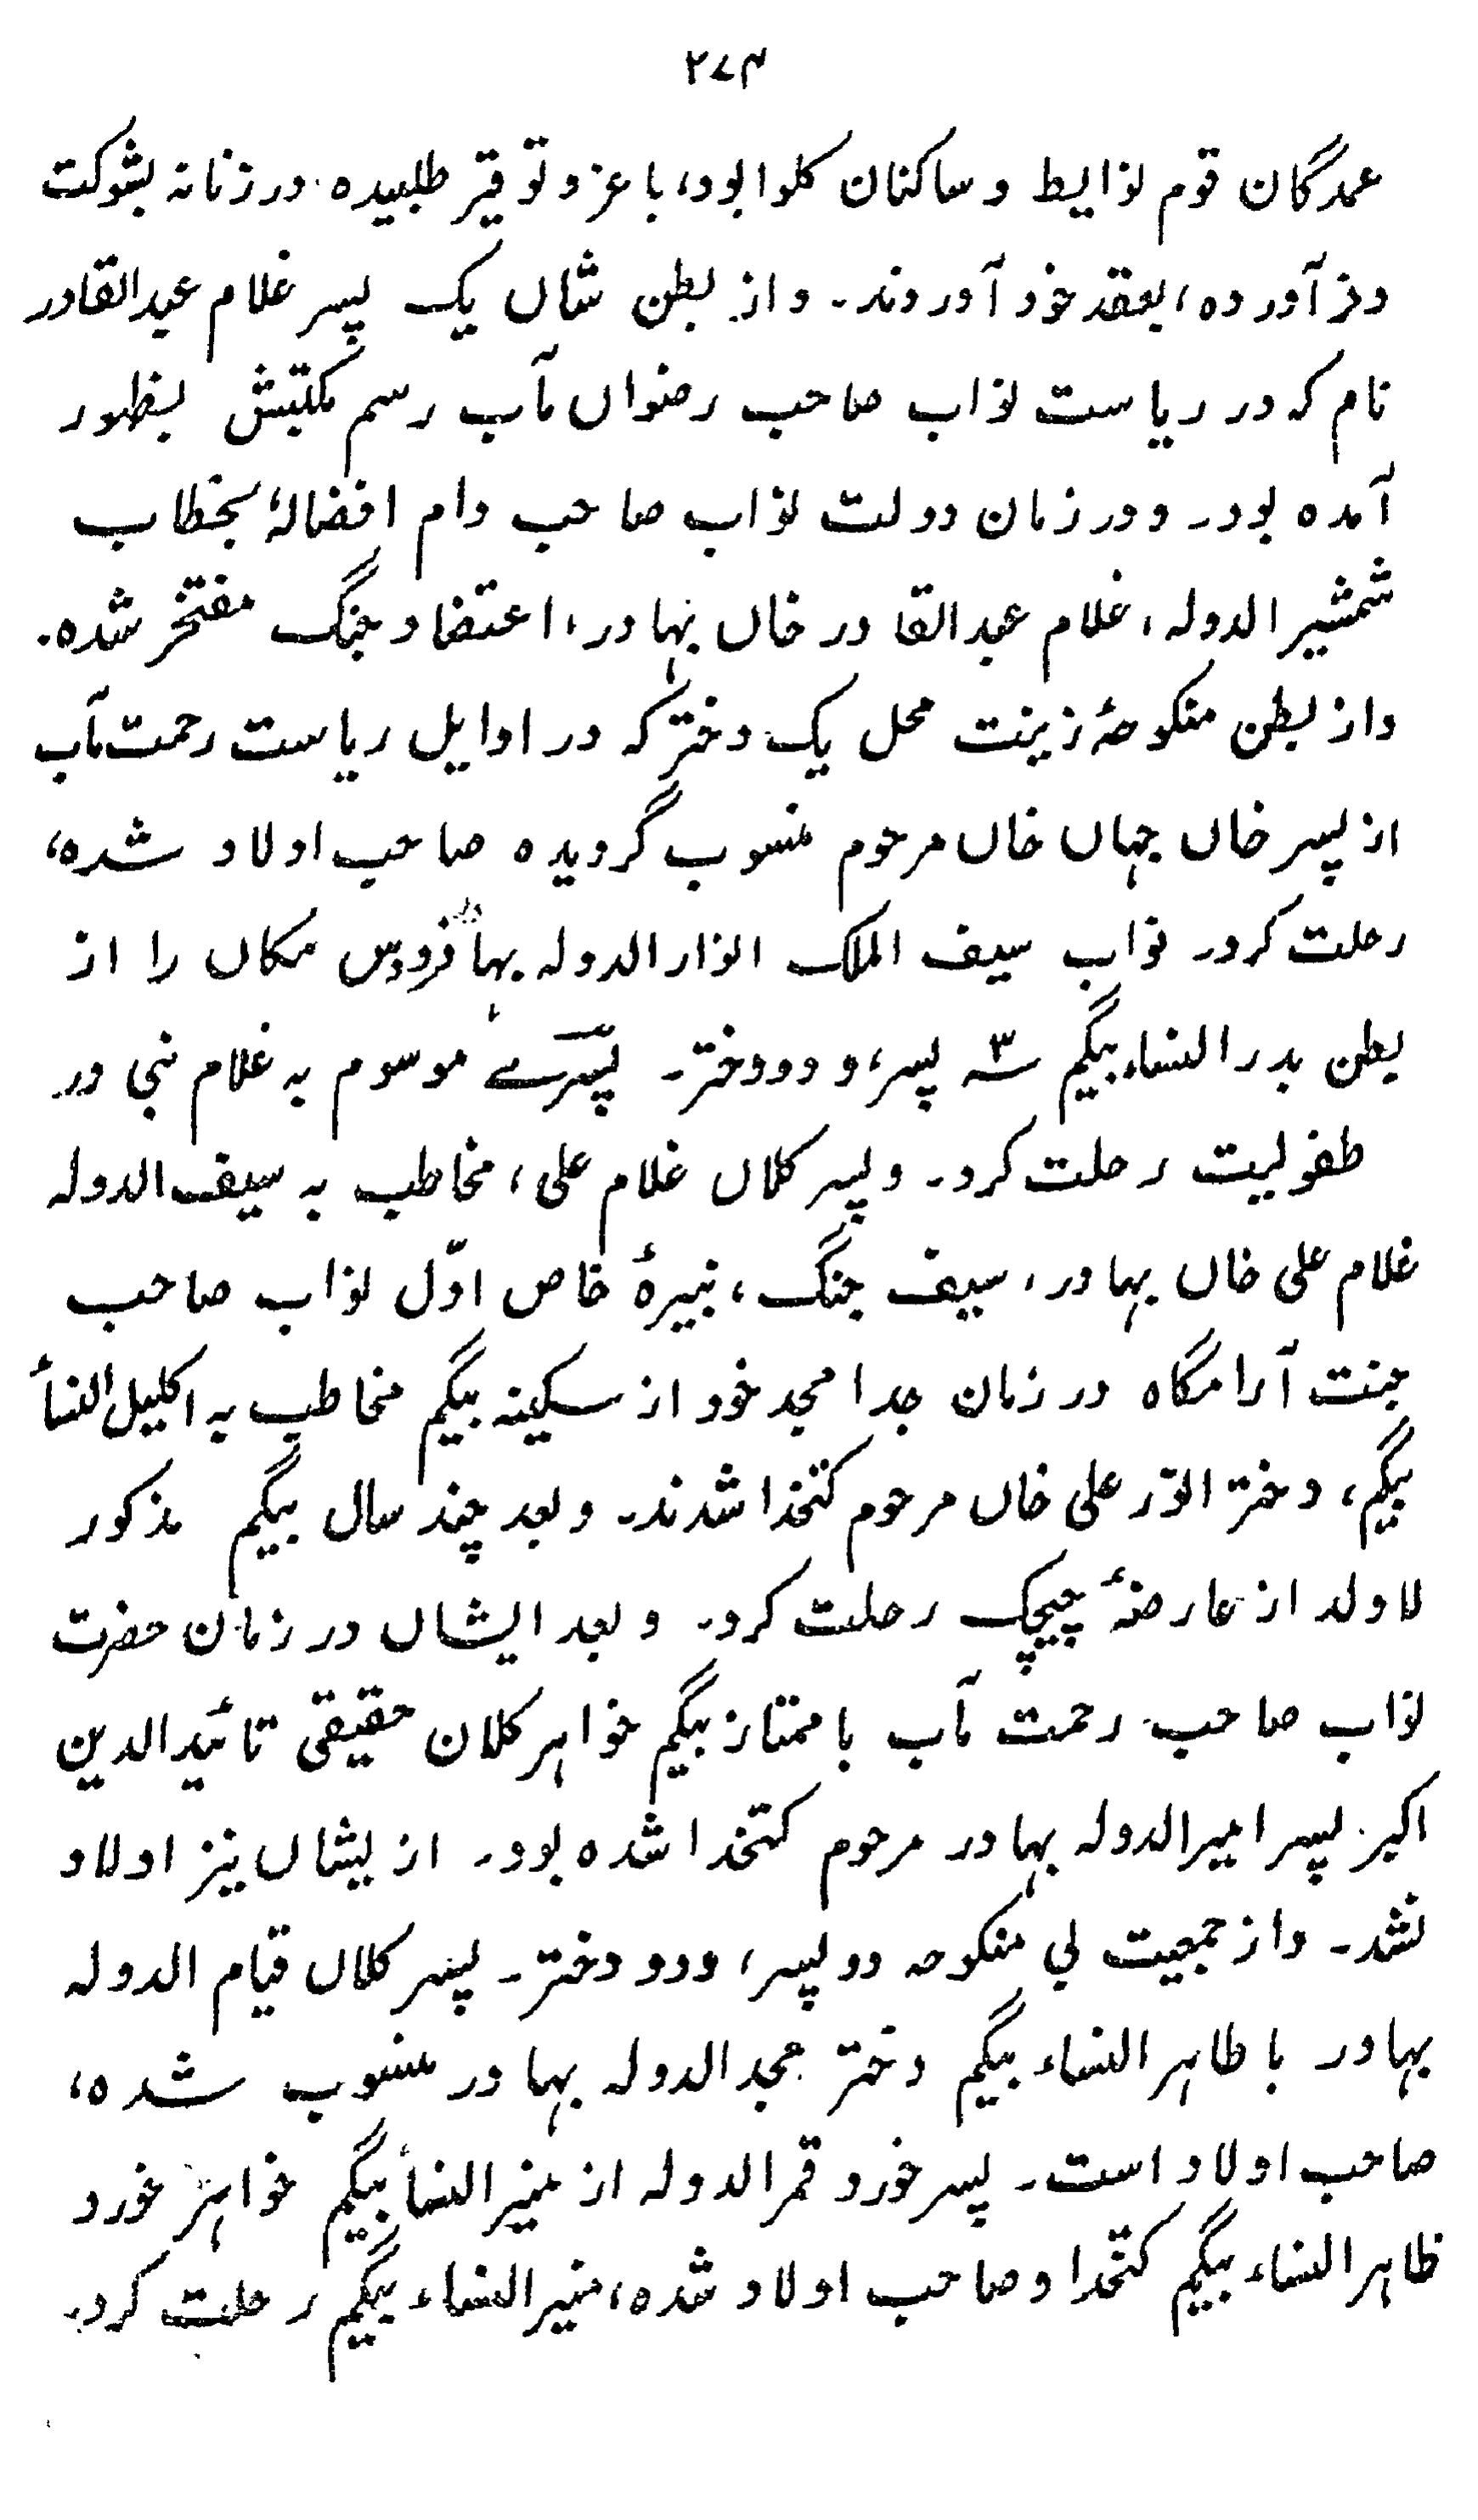 ۲۷۴
عمدگان قوم نوایط و ساکنان کلوا بود، با عز و توقیر طلبیده در زنانه بشوکت
در آورده، بعقد خود آوردند۔ و از بطن شاں یک پسر غلام عبدالقادر
نام که در ریاست نواب صاحب رضواں مآب رسم مکتبش بظهور
آمده بود۔ و در زمان دولت نواب صاحب دام افضالهٗ بخطاب
شمشیر الدوله، غلام عبدالقادر خاں بهادر، اعتضاد جنگ مفتخر شده۔
و از بطن منکوحهٔ زینت محل یک دختر که در اوایل ریاست رحمت مآب
از پسر خاں جهاں خاں مرحوم منسوب گردیده صاحب اولاد شده،
رحلت کرد۔ نواب سیف الملک انوار الدوله بهادر فردوس مکاں را از
بطن بدر النساء بیگم سه ۳ پسر، و دو دختر۔ پسرے موسوم به غلام نبی در
طفولیت رحلت کرد۔ و پسر کلاں غلام علی، مخاطب به سیف الدوله
غلام علی خاں بهادر، سیف جنگ، نبیرهٔ خاص اوّل نواب صاحب
جنت آرامگاه در زمان جد امجد خود از سکینه بیگم مخاطب به اکلیل النسأ
بیگم، دختر انور علی خاں مرحوم کتخدا شدند۔ و بعد چند سال بیگم مذکور
لاولد از عارضهٔ چیچک رحلت کرد۔ و بعد ایشاں در زمان حضرت
نواب صاحب رحمت مآب با ممتاز بیگم خواهر کلان حقیقی تائید الدین
اکبر پسر امیر الدوله بهادر مرحوم کتخدا شده بود۔ از یشاں نیز اولاد
نشد۔ و از جمعیت بی منکوحه دو پسر، و دو دختر۔ پسر کلاں قیام الدوله
بهادر با طاهر النساء بیگم دختر مجد الدوله بهادر منسوب شده،
صاحب اولاد است۔ پسر خورد قمر الدوله از منیر النسأ بیگم خواهر خورد
ظاهر النساء بیگم کتخدا و صاحب اولاد شده، منیر النساء بیگم رحلت کرد۔